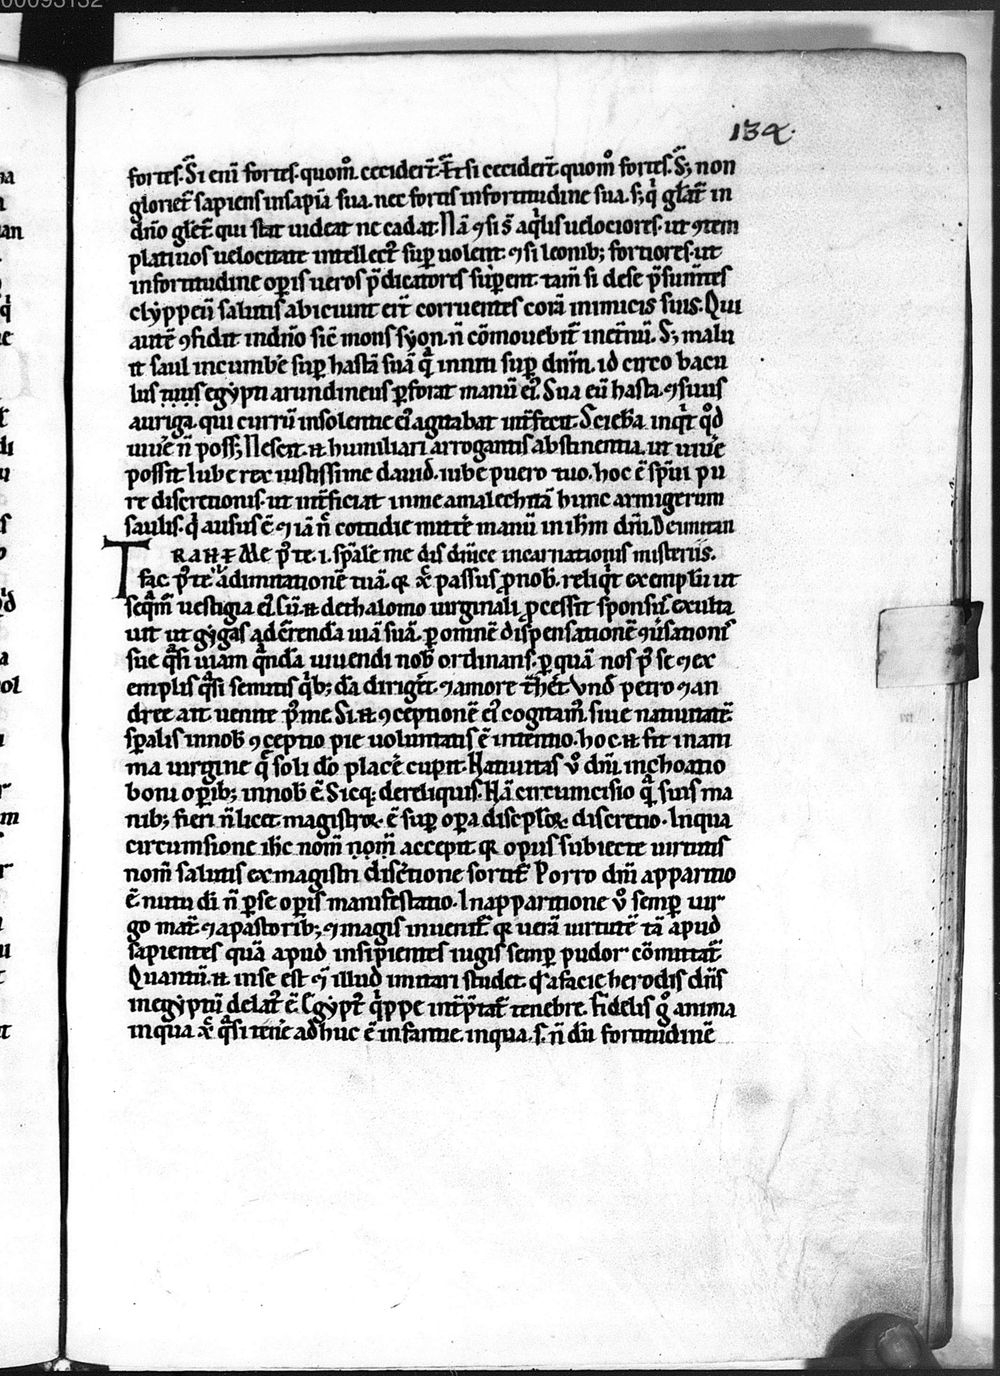 00093132
134.
fortes. S̄i eni fortes. quom̊. cecider̄t. Et̄ si cecidert̄. quom̊ fortes. S; non
gloriet̄ sapiens in sapīa sua. nec fortis in fortitudine sua. s; q̇ gl̄at̄ in
dn̄o gl̄et̄. qui stat uideat ne cadat. Nā ⁊ si s̄ aq̇lis uelociores. ut ꝯtem
platiuos uelocitate intellect᷒ sup̄ uolent. ⁊ si leonib; fortiores. ut
in fortitudine op̄is ueros p̄dicatores sup̄ent. tam̄ si de se p̄sum̄tes
clyppeū salutis abiciunt er̄t corruentes corā inimicis suis. Qui
aut̄ ꝯfidit in dn̄o sic̄ mons syon. n̄ cōmouebit̄ in et̄nū. S; malu
it saul incumb̄e sup̄ hastā suā q̄ inniti sup̄ dn̄m. id circo bacu
lus tuus egypti arundineus ꝑforat manū ei᷒. Sua eū hasta. ⁊ suus
auriga. qui currū insolentie ei᷒ agitabat int̄fecit. Scieba. inq̇t q̊d
uiu̅e n̄ poss; Nescit. ⁊ humiliari arrogantis abstinentia. ut uiu̅e
possit Iube rex iustissime dauid. iube puero tuo. hoc ē sp̄ui pu
re discretionis. ut int̄ficiat in me amalechitā hunc armigerum
saulis. q̇ ausus ē ⁊ iā n̄ cottidie mitte manū in ih̄m dn̄i. De imitan
TRAHE Me p̄ te. i. sp̄ale me dis diuīce incarnationis misteriis.
fac p̄ te ad imitationē tuā. q̄ xp̄c passus ꝓ nob̄. reliq̇t exemplū ut
seq̄m̄ uestigia ei᷒. Cū ⁊ de thalamo uirginali ꝓcessit sponsus᷒. exulta
uit ut gygas ad c̄renda uiā suā. ꝑ omnē dispensationē ꝯūsationis
sue q̄si uiam q̄nda uiuendi nob̄ ordinans. ꝑ quā nos p̄ se ⁊ ex
emplis q̄si semitis q̇b;da dirig̅it. ⁊ amore t̄het̄. Vn̄d petro ⁊ an
dree ait. uenite p̄ me. Si ⁊ ꝯceptionē ei᷒ cogitam᷒. siue natiuitatē.
sp̄alis in nob̄ ꝯceptio pie uoluntatis ē intentio. hoc ⁊ fit in ani
ma uirgine q̄ soli dō placē cupit. Natiuitas ů dn̄i. inchoatio
boni op̄ib; in nob̄ ē Sicq; de reliquis. Nā circumcisio q̄ suis ma
nib; fieri n̄ licet. magistroꝝ. ē sup̄ opera discploꝝ. discretio. In qua
circumsione ih̄c nom̄ nom̄ accepit. q̄ opus subiecte uirtutis
nom̄ salutis ex magistri disc̄tione sortit̄ Porro dn̄i apparitio
ē nutu di n̄ ꝑ se op̄is manifestatio. In apparitione ů semp̄ uir
go mat̄. ⁊ a pastorib; ⁊ magis inuenit̄. q̄ uerā uirtutē tā apud
sapientes quā apud insipientes iugis semp̄ pudor cōmitat̄.
Quantū ⁊ in se est ⁊ illud imitari studet. qđ a facie herodis dn̄s
in egyptū delat᷒ ē. Egypt᷒ q̇ppe int̄p̄tat̄ tenebre. Fidelis g̊ anima
in qua xp̄c q̄si ten̄e adhuc ē infantie. in qua. s. n̄ dū fortitudinē